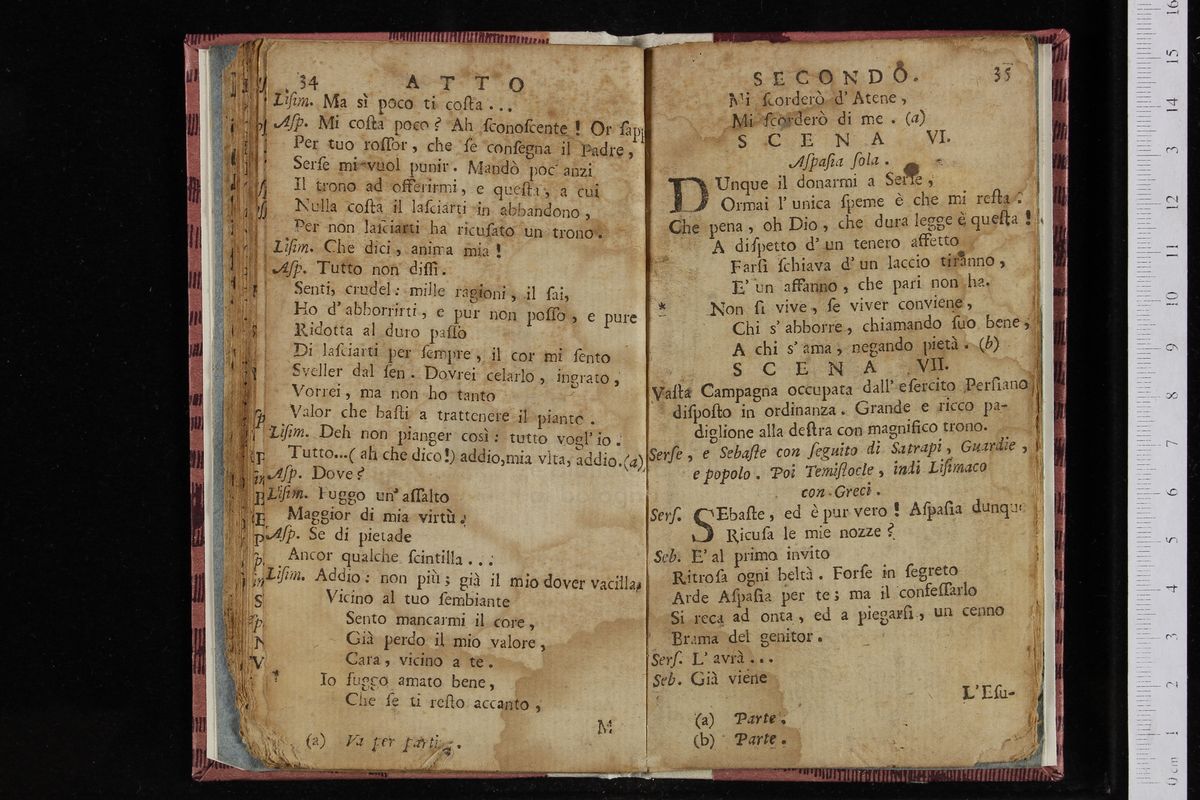 34 ATTO
Liſim. Ma sì poco ti coſta...
Aſp. Mi coſta poco? Ah ſconoſcente! Or ſapi
Per tuo roſſor, che ſe conſegna il Padre,
Serſe mi vuol punir. Mandò poc' anzi
Il trono ad offerirmi, e queſta, a cui
Nulla coſta il laſciarti in abbandono,
Per non laſciarti ha ricuſato un trono.
Liſim. Che dici, anima mia!
Aſp. Tutto non diſſi.
Senti, crudel: mille ragioni, il ſai,
Ho d'abborrirti, e pur non poſſo, e pure
Ridotta al duro paſſo
Di laſciarti per ſempre, il cor mi ſento
Sveller dal ſen. Dovrei celarlo, ingrato,
Vorrei, ma non ho tanto
Valor che baſti a trattenere il pianto.
Liſim. Deh non pianger così: tutto vogl'io.
Tutto...( ah che dico!) addio,mia vita, addio.(a)
Aſp. Dove?
Liſim. Fuggo un' aſſalto
Maggior di mia virtù.
Aſp. Se di pietade
Ancor qualche ſcintilla...
Liſim. Addio: non più; già il mio dover vacilla.
Vicino al tuo ſembiante
Sento mancarmi il core,
Già perdo il mio valore,
Cara, vicino a te.
Io fuggo amato bene,
Che ſe ti reſto accanto,
M
(a) Va per partire.
SECONDO. 35
Mi ſcorderò d'Atene,
Mi ſcorderò di me. (a)
SCENA VI.
Aſpaſia ſola.
DUnque il donarmi a Serſe,
Ormai l'unica ſpeme è che mi reſta.
Che pena, oh Dio, che dura legge è queſta!
A diſpetto d'un tenero affetto
Farſi ſchiava d'un laccio tiranno,
E' un affanno, che pari non ha.
* Non ſi vive, ſe viver conviene,
Chi s'abborre, chiamando ſuo bene,
A chi s'ama, negando pietà. (b)
SCENA VII.
Vaſta Campagna occupata dall' eſercito Perſiano
diſpoſto in ordinanza. Grande e ricco pa-
diglione alla deſtra con magnifico trono.
Serſe, e Sebaſte con ſeguito di Satrapi, Guardie,
e popolo. Poi Temiſtocle, indi Liſimaco
con Greci.
Serſ. SEbaſte, ed è pur vero! Aſpaſia dunque
Ricuſa le mie nozze?
Seb. E' al primo invito
Ritroſa ogni beltà. Forſe in ſegreto
Arde Aſpaſia per te; ma il confeſſarlo
Si reca ad onta, ed a piegarſi, un cenno
Brama del genitor.
Serſ. L'avrà...
Seb. Già viene
L'Eſu-
(a) Parte.
(b) Parte.